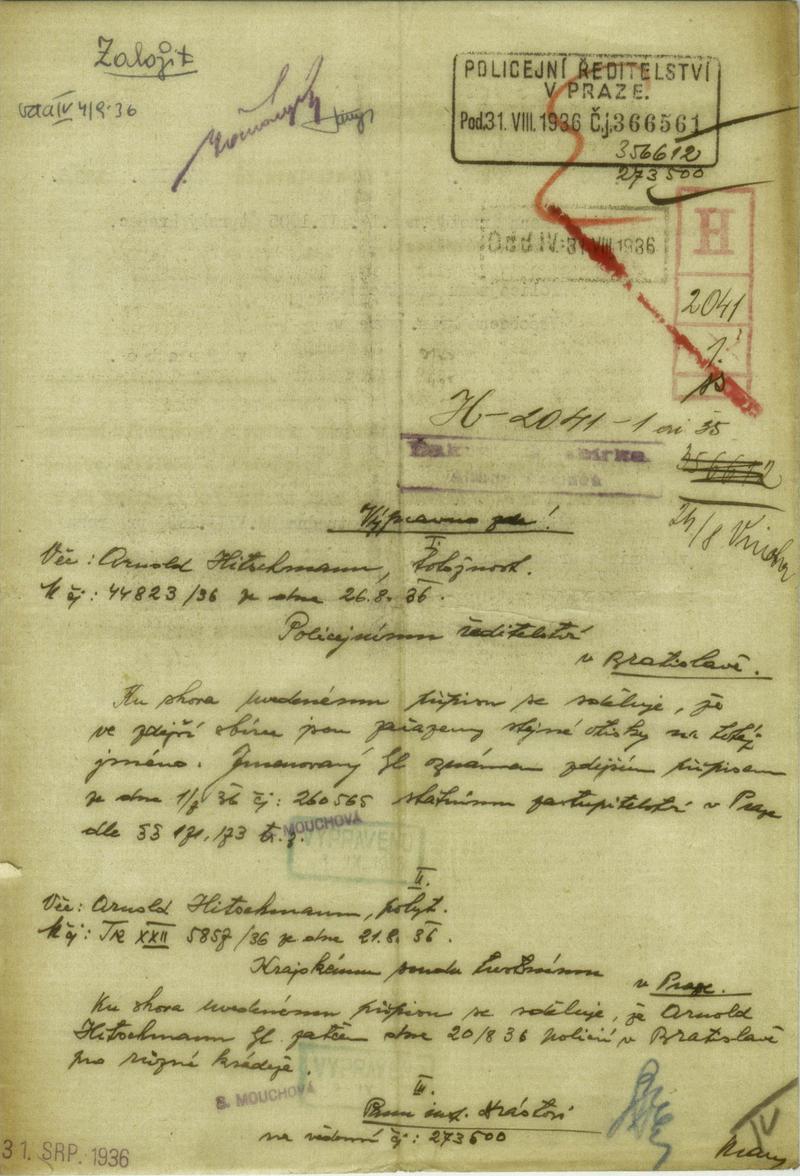 Založit
odd IV 4/9·36
POLICEJNÍ ŘEDITELSTVÍ
V PRAZE.
Pod. 31. VIII. 1936 Č.j. 366561
356612
273500
Odd IV: 31 VIII 1936
H
2041
1.
H-2041-1 ai 35
356612
24/8
Výpravno zde!
I.
Věc: Arnold Hitschmann, totožnost.
K čj: 44823/36 ze dne 26.8.36.
Policejnímu ředitelství
v Bratislavě.
Ku shora uvedenému přípisu se sděluje, že
ve zdejší sbírce jsou zařazeny stejné otisky na totéž
jméno. Jmenovaný byl oznámen zdejším přípisem
ze dne 1/7 36 čj: 260565 státnímu zastupitelství v Praze
dle §§ 171, 173 tr. z.
MOUCHOVÁ
VYPRAVENO
II.
Věc: Arnold Hitschmann, pobyt.
K čj: Tk XXII 5857/36 ze dne 21.8.36.
Krajskému soudu trestnímu
v Praze.
Ku shora uvedenému přípisu se sděluje, že Arnold
Hitschmann byl zatčen dne 20/8 36 policií v Bratislavě
pro různé krádeže.
VYPRAVENO
B. MOUCHOVÁ
III.
Panu insp.
na vědomí čj: 273500
IV
31. SRP. 1936